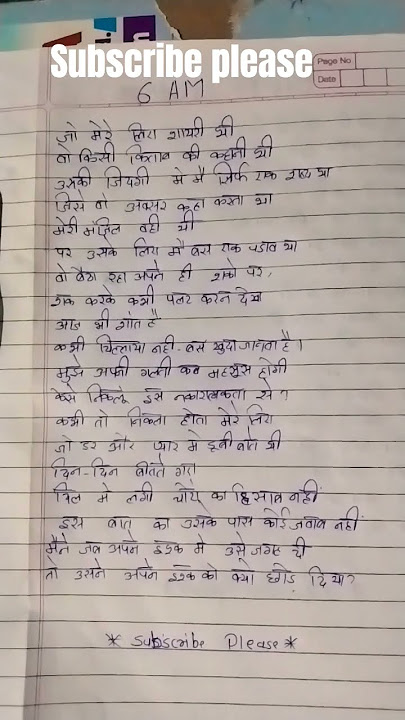 Subscribe please
Page No
Date
6 AM
जो मेरे लिए शायरी थी
वो किसी किताब की कहानी थी
उसकी जिंदगी मे मैं सिर्फ एक शब्द था
जिसे वो अक्सर कहा करता था
मेरी मंज़िल वही थी
पर उसके लिए मैं बस एक पडाव था
वो बैठा रहा अपने ही शको पर,
शक करके कभी पलट करन देख
आज भी शांत है
कभी चिल्लाया नही बस खुदा जानता है।
मुझे अपनी गलती कब महसूस होगी
कैसे निकलू इस नकारात्मकता से?
कभी तो निकला होता मेरे लिए
जो डर और प्यार मे डूबी बात थी
दिन-दिन बीतते गए
दिल मे लगी चोट का हिसाब नहीं
इस बात का उसके पास कोई जवाब नहीं
मैंने जब अपने इश्क मे उसे जगह दी
तो उसने अपने इश्क को क्यो छोड़ दिया?
* Subscribe Please *